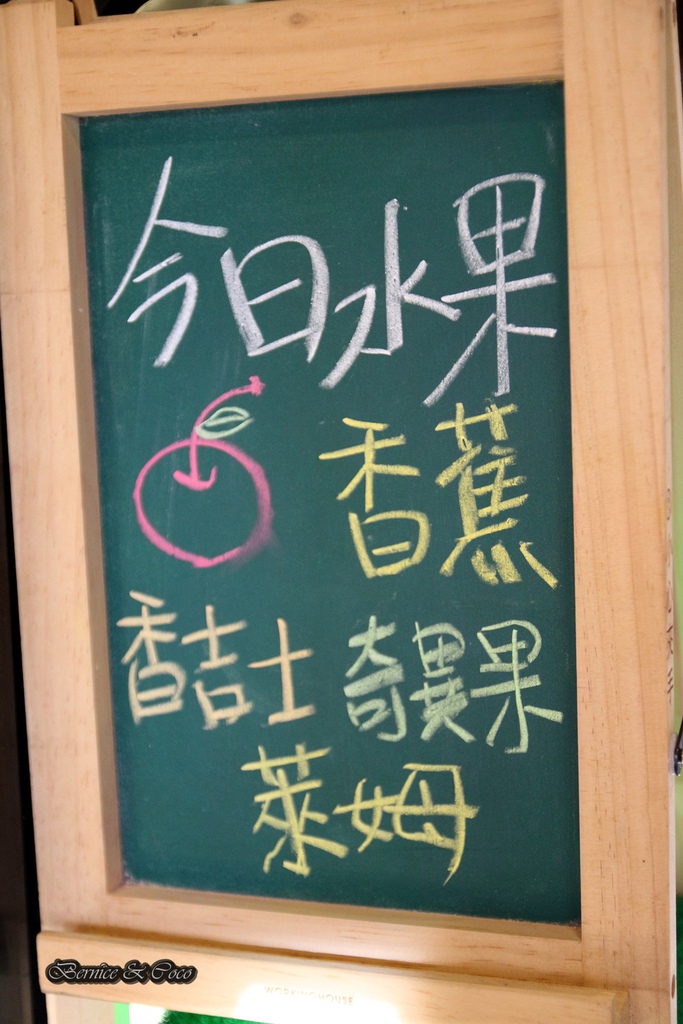 今日水果
香蕉
香吉士 奇異果
萊姆
Bernice & Coco
WORKINGHOUSE